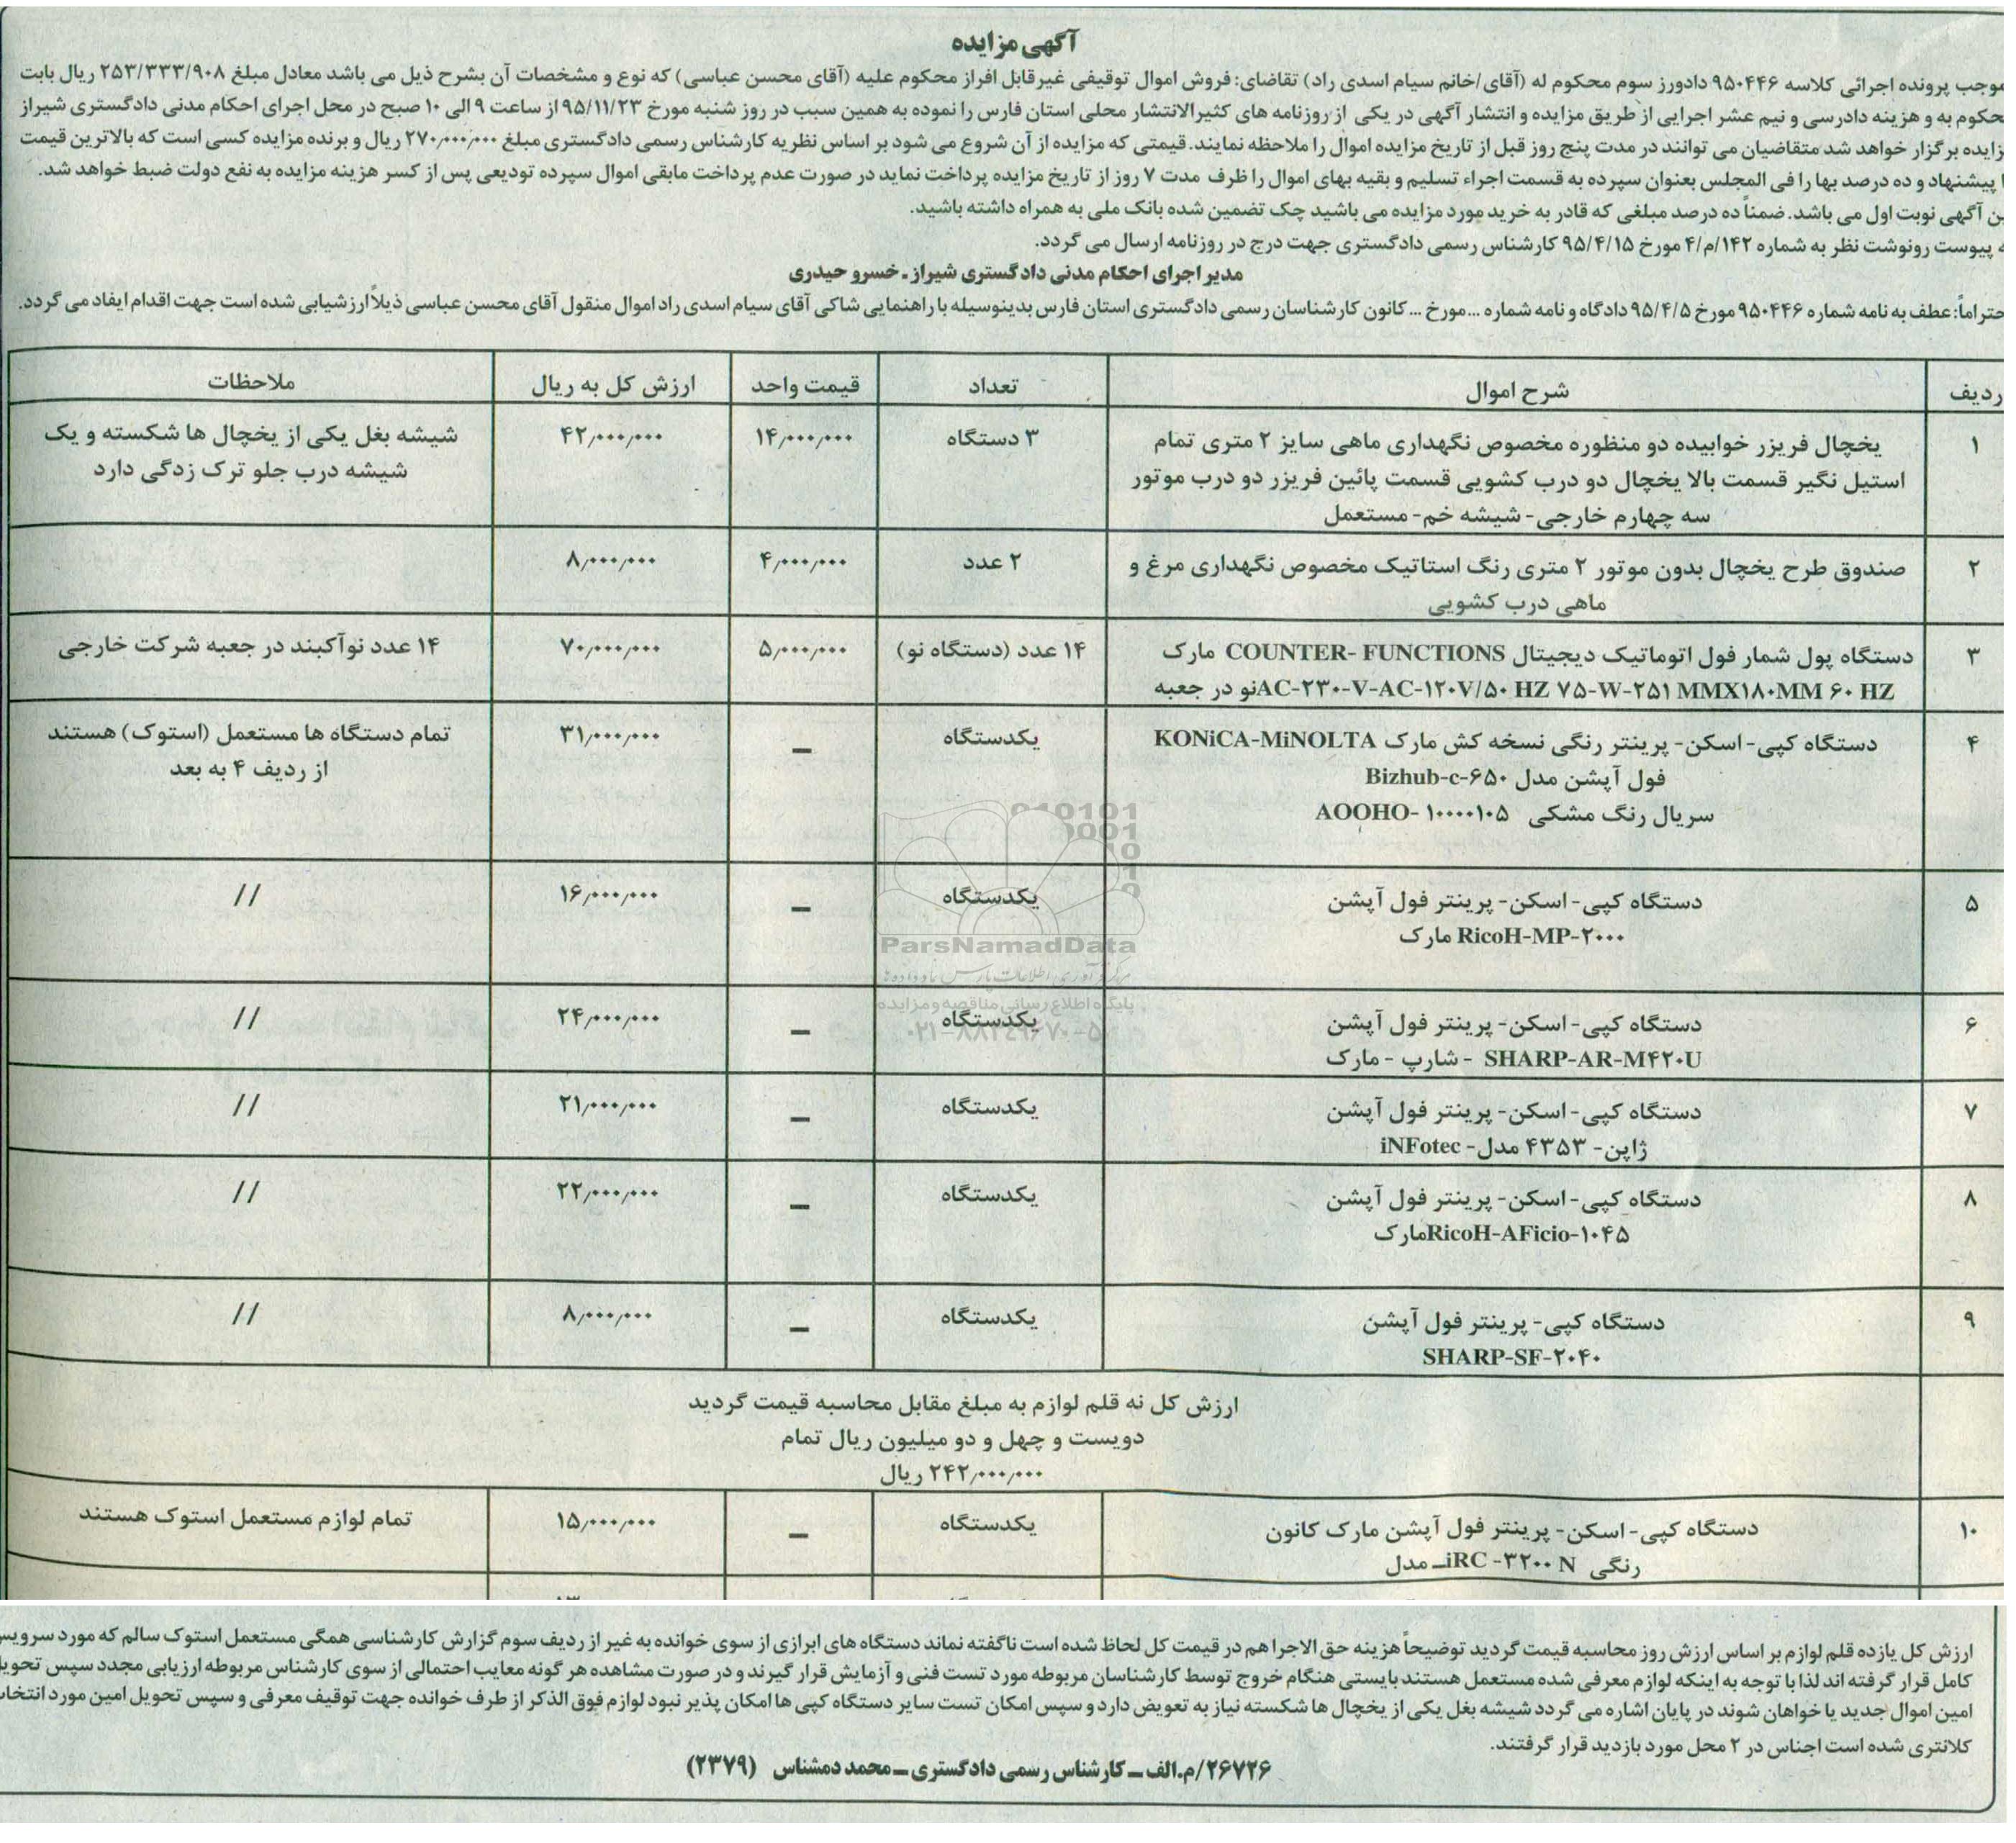 آگهی مزایده
موجب پرونده اجرائی کلاسه ۹۵۰۴۴۶ دادورز سوم محکوم له (آقای/خانم سیام اسدی راد) تقاضای: فروش اموال توقیفی غیرقابل افراز محکوم علیه (آقای محسن عباسی) که نوع و مشخصات آن بشرح ذیل می باشد معادل مبلغ ۲۵۳/۳۳۳/۹۰۸ ریال بابت
محکوم به و هزینه دادرسی و نیم عشر اجرایی از طریق مزایده و انتشار آگهی در یکی از روزنامه های کثیرالانتشار محلی استان فارس را نموده به همین سبب در روز شنبه مورخ ۹۵/۱۱/۲۳ از ساعت ۹ الی ۱۰ صبح در محل اجرای احکام مدنی دادگستری شیراز
زایده برگزار خواهد شد متقاضیان می توانند در مدت پنج روز قبل از تاریخ مزایده اموال را ملاحظه نمایند. قیمتی که مزایده از آن شروع می شود بر اساس نظریه کارشناس رسمی دادگستری مبلغ ۲۷۰٫۰۰۰٫۰۰۰ ریال و برنده مزایده کسی است که بالاترین قیمت
ا پیشنهاد و ده درصد بها را فی المجلس بعنوان سپرده به قسمت اجراء تسلیم و بقیه بهای اموال را ظرف مدت ۷ روز از تاریخ مزایده پرداخت نماید در صورت عدم پرداخت مابقی اموال سپرده تودیعی پس از کسر هزینه مزایده به نفع دولت ضبط خواهد شد.
ین آگهی نوبت اول می باشد. ضمناً ده درصد مبلغی که قادر به خرید مورد مزایده می باشید چک تضمین شده بانک ملی به همراه داشته باشید.
ه پیوست رونوشت نظر به شماره ۱۴۲/م/۴ مورخ ۹۵/۴/۱۵ کارشناس رسمی دادگستری جهت درج در روزنامه ارسال می گردد.
مدیر اجرای احکام مدنی دادگستری شیراز ـ خسرو حیدری
حتراماً: عطف به نامه شماره ۹۵۰۴۴۶ مورخ ۹۵/۴/۵ دادگاه و نامه شماره ... مورخ ... کانون کارشناسان رسمی دادگستری استان فارس بدینوسیله با راهنمایی شاکی آقای سیام اسدی راد اموال منقول آقای محسن عباسی ذیلاً ارزشیابی شده است جهت اقدام ایفاد می گردد.
ردیف شرح اموال تعداد قیمت واحد ارزش کل به ریال ملاحظات
۱ یخچال فریزر خوابیده دو منظوره مخصوص نگهداری ماهی سایز ۲ متری تمام ۳ دستگاه ۱۴٫۰۰۰٫۰۰۰ ۴۲٫۰۰۰٫۰۰۰ شیشه بغل یکی از یخچال ها شکسته و یک
استیل نگیر قسمت بالا یخچال دو درب کشویی قسمت پائین فریزر دو درب موتور شیشه درب جلو ترک زدگی دارد
سه چهارم خارجی- شیشه خم- مستعمل
۲ صندوق طرح یخچال بدون موتور ۲ متری رنگ استاتیک مخصوص نگهداری مرغ و ۲ عدد ۴٫۰۰۰٫۰۰۰ ۸٫۰۰۰٫۰۰۰
ماهی درب کشویی
۳ دستگاه پول شمار فول اتوماتیک دیجیتال COUNTER- FUNCTIONS مارک ۱۴ عدد (دستگاه نو) ۵٫۰۰۰٫۰۰۰ ۷۰٫۰۰۰٫۰۰۰ ۱۴ عدد نوآکبند در جعبه شرکت خارجی
AC-۲۳۰-V-AC-۱۲۰V/۵۰ HZ ۷۵-W-۲۵۱ MMX۱۸۰MM ۶۰ HZ نو در جعبه
۴ دستگاه کپی- اسکن- پرینتر رنگی نسخه کش مارک KONiCA-MiNOLTA یکدستگاه – ۳۱٫۰۰۰٫۰۰۰ تمام دستگاه ها مستعمل (استوک) هستند
فول آپشن مدل Bizhub-c-۶۵۰ از ردیف ۴ به بعد
سریال رنگ مشکی AOOHO- ۱۰۰۰۰۱۰۵
۵ دستگاه کپی- اسکن- پرینتر فول آپشن یکدستگاه – ۱۶٫۰۰۰٫۰۰۰ //
RicoH-MP-۲۰۰۰ مارک
ParsNamadData
پایگاه اطلاع رسانی مناقصه و مزایده
۶ دستگاه کپی- اسکن- پرینتر فول آپشن یکدستگاه – ۲۴٫۰۰۰٫۰۰۰ //
SHARP-AR-M۴۲۰U - شارپ - مارک
۷ دستگاه کپی- اسکن- پرینتر فول آپشن یکدستگاه – ۲۱٫۰۰۰٫۰۰۰ //
ژاپن- ۴۳۵۳ مدل- iNFotec
۸ دستگاه کپی- اسکن- پرینتر فول آپشن یکدستگاه – ۲۲٫۰۰۰٫۰۰۰ //
RicoH-AFicio-۱۰۴۵مارک
۹ دستگاه کپی- پرینتر فول آپشن یکدستگاه – ۸٫۰۰۰٫۰۰۰ //
SHARP-SF-۲۰۴۰
ارزش کل نه قلم لوازم به مبلغ مقابل محاسبه قیمت گردید
دویست و چهل و دو میلیون ریال تمام
۲۴۲٫۰۰۰٫۰۰۰ ریال
۱۰ دستگاه کپی- اسکن- پرینتر فول آپشن مارک کانون یکدستگاه – ۱۵٫۰۰۰٫۰۰۰ تمام لوازم مستعمل استوک هستند
رنگی iRC -۳۲۰۰ N ـ مدل
ارزش کل یازده قلم لوازم بر اساس ارزش روز محاسبه قیمت گردید توضیحاً هزینه حق الاجرا هم در قیمت کل لحاظ شده است ناگفته نماند دستگاه های ابرازی از سوی خوانده به غیر از ردیف سوم گزارش کارشناسی همگی مستعمل استوک سالم که مورد سرویس
کامل قرار گرفته اند لذا با توجه به اینکه لوازم معرفی شده مستعمل هستند بایستی هنگام خروج توسط کارشناسان مربوطه مورد تست فنی و آزمایش قرار گیرند و در صورت مشاهده هر گونه معایب احتمالی از سوی کارشناس مربوطه ارزیابی مجدد سپس تحویل
امین اموال جدید یا خواهان شوند در پایان اشاره می گردد شیشه بغل یکی از یخچال ها شکسته نیاز به تعویض دارد و سپس امکان تست سایر دستگاه کپی ها امکان پذیر نبود لوازم فوق الذکر از طرف خوانده جهت توقیف معرفی و سپس تحویل امین مورد انتخاب
کلانتری شده است اجناس در ۲ محل مورد بازدید قرار گرفتند.
۲۶۷۲۶/م.الف ـ کارشناس رسمی دادگستری ـ محمد دمشناس (۲۳۷۹)